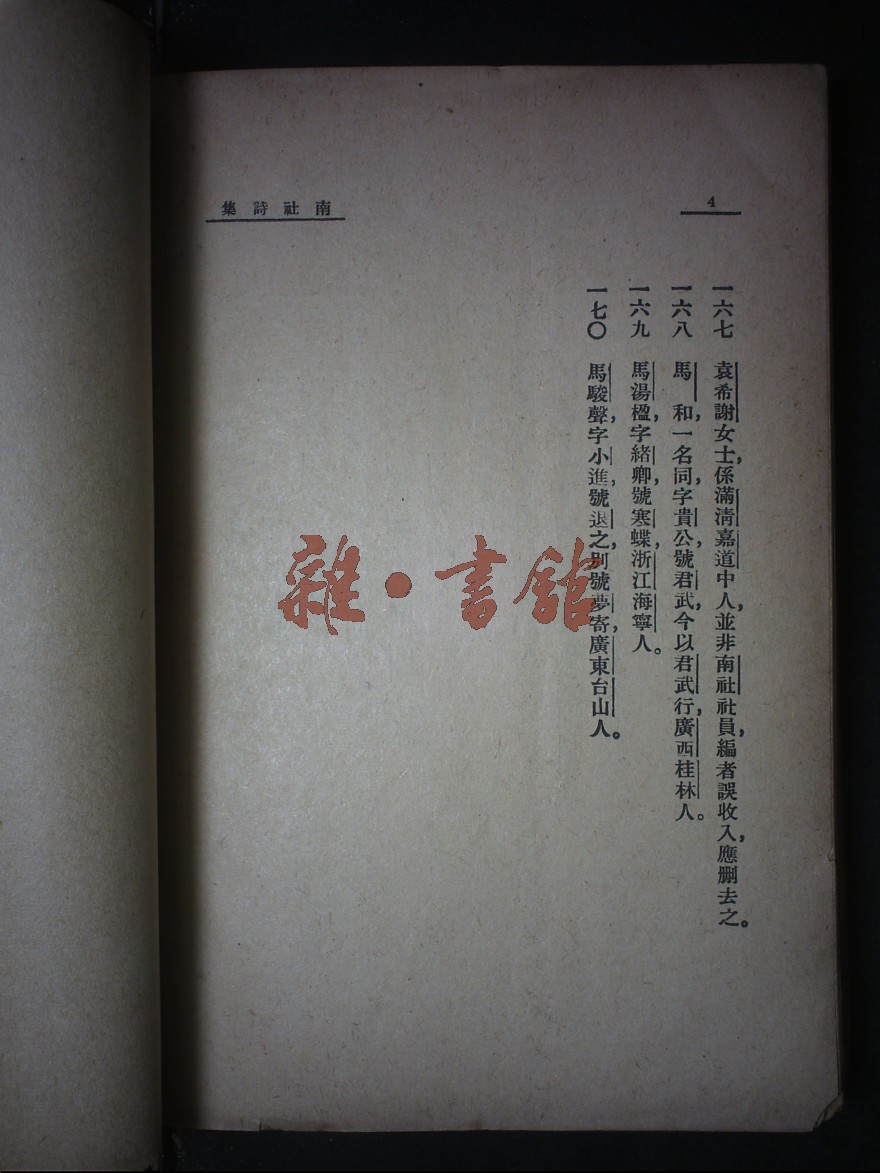 4
南社詩集
一六七 袁希謝女士,係滿清嘉道中人,並非南社社員,編者誤收入,應刪去之。
一六八 馬 和,一名同,字貴公,號君武,今以君武行,廣西桂林人。
一六九 馬湯楹,字緒卿,號寒蝶,浙江海寧人。
一七〇 馬駿聲,字小進,號退之,別號夢寄,廣東台山人。
雜·書館